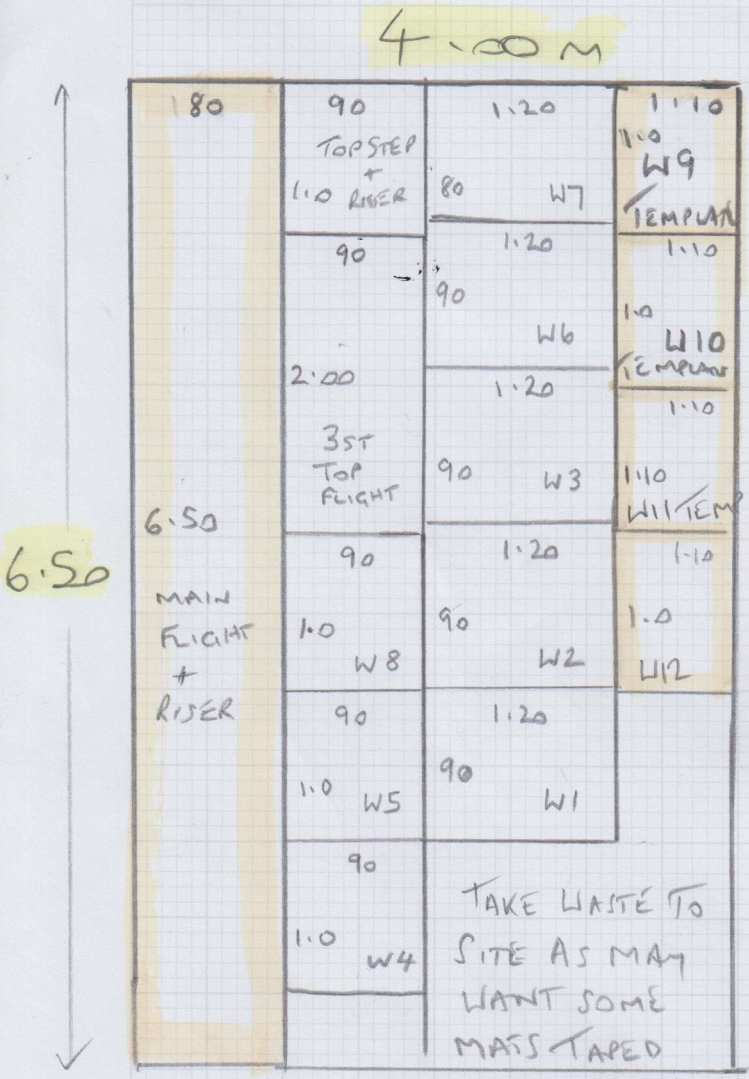 4.00 M
6.50
80
6.50
MAIN
FLIGHT
+
RISER
90
TOP STEP
+
1.0 RISER
90
2.00
3ST
TOP
FLIGHT
90
1.0
W8
90
1.0 W5
90
1.0 W4
1.20
80 W7
1.20
90
W6
1.20
90 W3
1.20
90
W2
1.20
90
W1
1.10
1.0
W9
1.10
1.0
W10
1.10
1.10
W11 TEMP
1.10
1.0
W12
TAKE WASTE TO
SITE AS MAY
WANT SOME
MATS TAPED